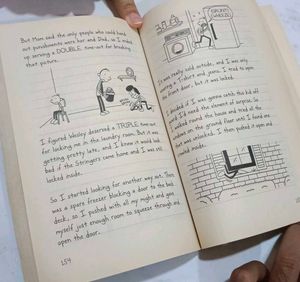 But Mom said the only people who could hand
out punishments were her and Dad, so I ended
up serving a DOUBLE time-out for breaking
that picture.
I figured Wesley deserved a TRIPLE time-out
for locking me in the laundry room. But it was
getting pretty late, and I knew it would look
bad if the Stringers came home and I was still
locked inside.
So I started looking for another way out. There
was a spare freezer blocking a door to the back
deck, so I pushed with all my might and gave
myself just enough room to squeeze through and
open the door.
154
It was really cold outside, and I was only
wearing a T-shirt and jeans. I tried to open
the front door, but it was locked.
I decided if I was gonna catch this kid off
guard I'd need the element of surprise. So
I walked around the house and tried all the
windows on the ground floor until I found one
that was unlocked. I then pushed it open and
inside.